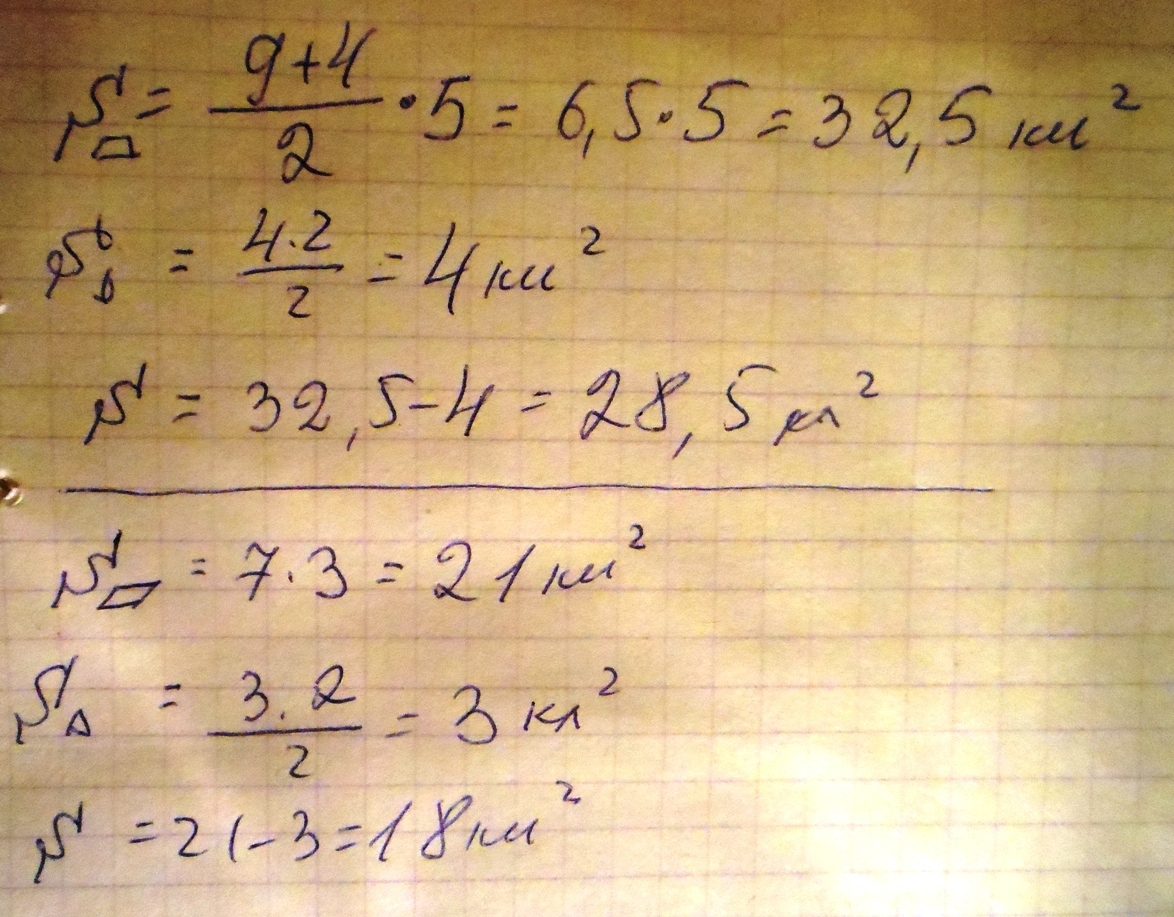 S⏢ = (9+4)/2 · 5 = 6,5 · 5 = 32,5 км²
S▷ = (4·2)/2 = 4 км²
S = 32,5 - 4 = 28,5 кл²
S▱ = 7·3 = 21 км²
S△ = (3.2)/2 = 3 кл²
S = 21 - 3 = 18 км²